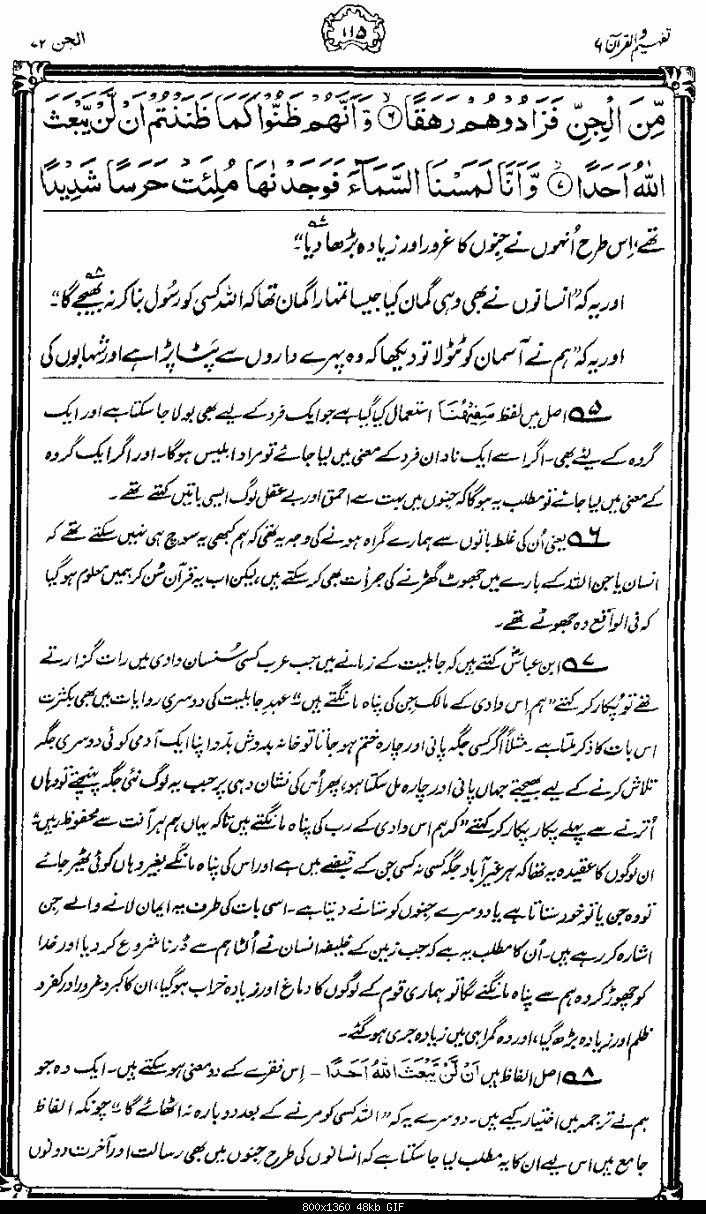 تفہیم القرآن ۶
۱۱۵
الجن ۷۲
مِّنَ الْجِنِّ فَزَادُوْهُمْ رَهَقًا ۙ﴿۶﴾ وَّاَنَّهُمْ ظَنُّوْا كَمَا ظَنَنْتُمْ اَنْ لَّنْ يَّبْعَثَ
اللّٰهُ اَحَدًا ۙ﴿۷﴾ وَّاَنَّا لَمَسْنَا السَّمَآءَ فَوَجَدْنٰهَا مُلِئَتْ حَرَسًا شَدِيْدًا
تھے، اِس طرح اُنہوں نے جِنّوں کا غرور اور زیادہ بڑھا دیا“۔ ۷
اور یہ کہ ”انسانوں نے بھی وہی گمان کیا جیسا تمہارا گمان تھا کہ اللہ کسی کو رسُول بنا کر نہ بھیجے گا“۔ ۸
اور یہ کہ ”ہم نے آسمان کو ٹٹولا تو دیکھا کہ وہ پہرے داروں سے پَٹا پڑا ہے اور شہابوں کی
۵ اصل میں لفظ سَفِيْهُنَا استعمال کیا گیا ہے جو ایک فرد کے لیے بھی بولا جا سکتا ہے اور ایک
گروہ کے لیے بھی۔ اگر اسے ایک نادان فرد کے معنی میں لیا جائے تو مراد ابلیس ہوگا۔ اور اگر ایک گروہ
کے معنی میں لیا جائے تو مطلب یہ ہوگا کہ جنوں میں بہت سے احمق اور بے عقل لوگ ایسی باتیں کہتے تھے۔
۶ یعنی اُن کی غلط باتوں سے ہمارے گمراہ ہونے کی وجہ یہ تھی کہ ہم کبھی یہ سوچ ہی نہیں سکتے تھے کہ
انسان یا جن اللہ کے بارے میں جھوٹ گھڑنے کی جرأت بھی کر سکتے ہیں، لیکن اب یہ قرآن سُن کر ہمیں معلوم ہو گیا
کہ فی الواقع وہ جھوٹے تھے۔
۷ ابن عباسؓ کہتے ہیں کہ جاہلیت کے زمانے میں جب عرب کسی سُنسان وادی میں رات گزارتے
تھے تو پُکار کر کہتے ”ہم اس وادی کے مالک جِن کی پناہ مانگتے ہیں“۔ عہدِ جاہلیت کی دوسری روایات میں بھی بکثرت
اس بات کا ذکر ملتا ہے۔ مثلاً اگر کسی جگہ پانی اور چارہ ختم ہو جاتا تو خانہ بدوش بدّو اپنا ایک آدمی کوئی دوسری جگہ
تلاش کرنے کے لیے بھیجتے جہاں پانی اور چارہ مل سکتا ہو، پھر اُس کی نشان دہی پر جب یہ لوگ نئی جگہ پہنچتے تو وہاں
اُترنے سے پہلے پکار پکار کر کہتے ”کہ ہم اس وادی کے رب کی پناہ مانگتے ہیں تاکہ یہاں ہم ہر آفت سے محفوظ رہیں“۔
ان لوگوں کا عقیدہ یہ تھا کہ ہر غیر آباد جگہ کسی نہ کسی جن کے قبضے میں ہے اور اس کی پناہ مانگے بغیر وہاں کوئی ٹھیر جائے
تو وہ جن یا تو خود ستاتا ہے یا دوسرے جِنّوں کو ستانے دیتا ہے۔ اسی بات کی طرف یہ ایمان لانے والے جن
اشارہ کر رہے ہیں۔ اُن کا مطلب یہ ہے کہ جب زمین کے خلیفہ انسان نے اُلٹا ہم سے ڈرنا شروع کر دیا اور خدا
کو چھوڑ کر وہ ہم سے پناہ مانگنے لگا تو ہماری قوم کے لوگوں کا دماغ اور زیادہ خراب ہو گیا، ان کا کبر و غرور اور کفر و
ظلم اور زیادہ بڑھ گیا، اور وہ گمراہی میں زیادہ جری ہو گئے۔
۸ اصل الفاظ ہیں اَنْ لَّنْ يَّبْعَثَ اللّٰهُ اَحَدًا – اِس فقرے کے دو معنی ہو سکتے ہیں۔ ایک وہ جو
ہم نے ترجمہ میں اختیار کیے ہیں۔ دوسرے یہ کہ ”اللہ کسی کو مرنے کے بعد دوبارہ نہ اٹھائے گا“۔ چونکہ الفاظ
جامع ہیں اس لیے ان کا یہ مطلب لیا جا سکتا ہے کہ انسانوں کی طرح جِنّوں میں بھی رسالت اور آخرت دونوں
800x1360 48kb GIF